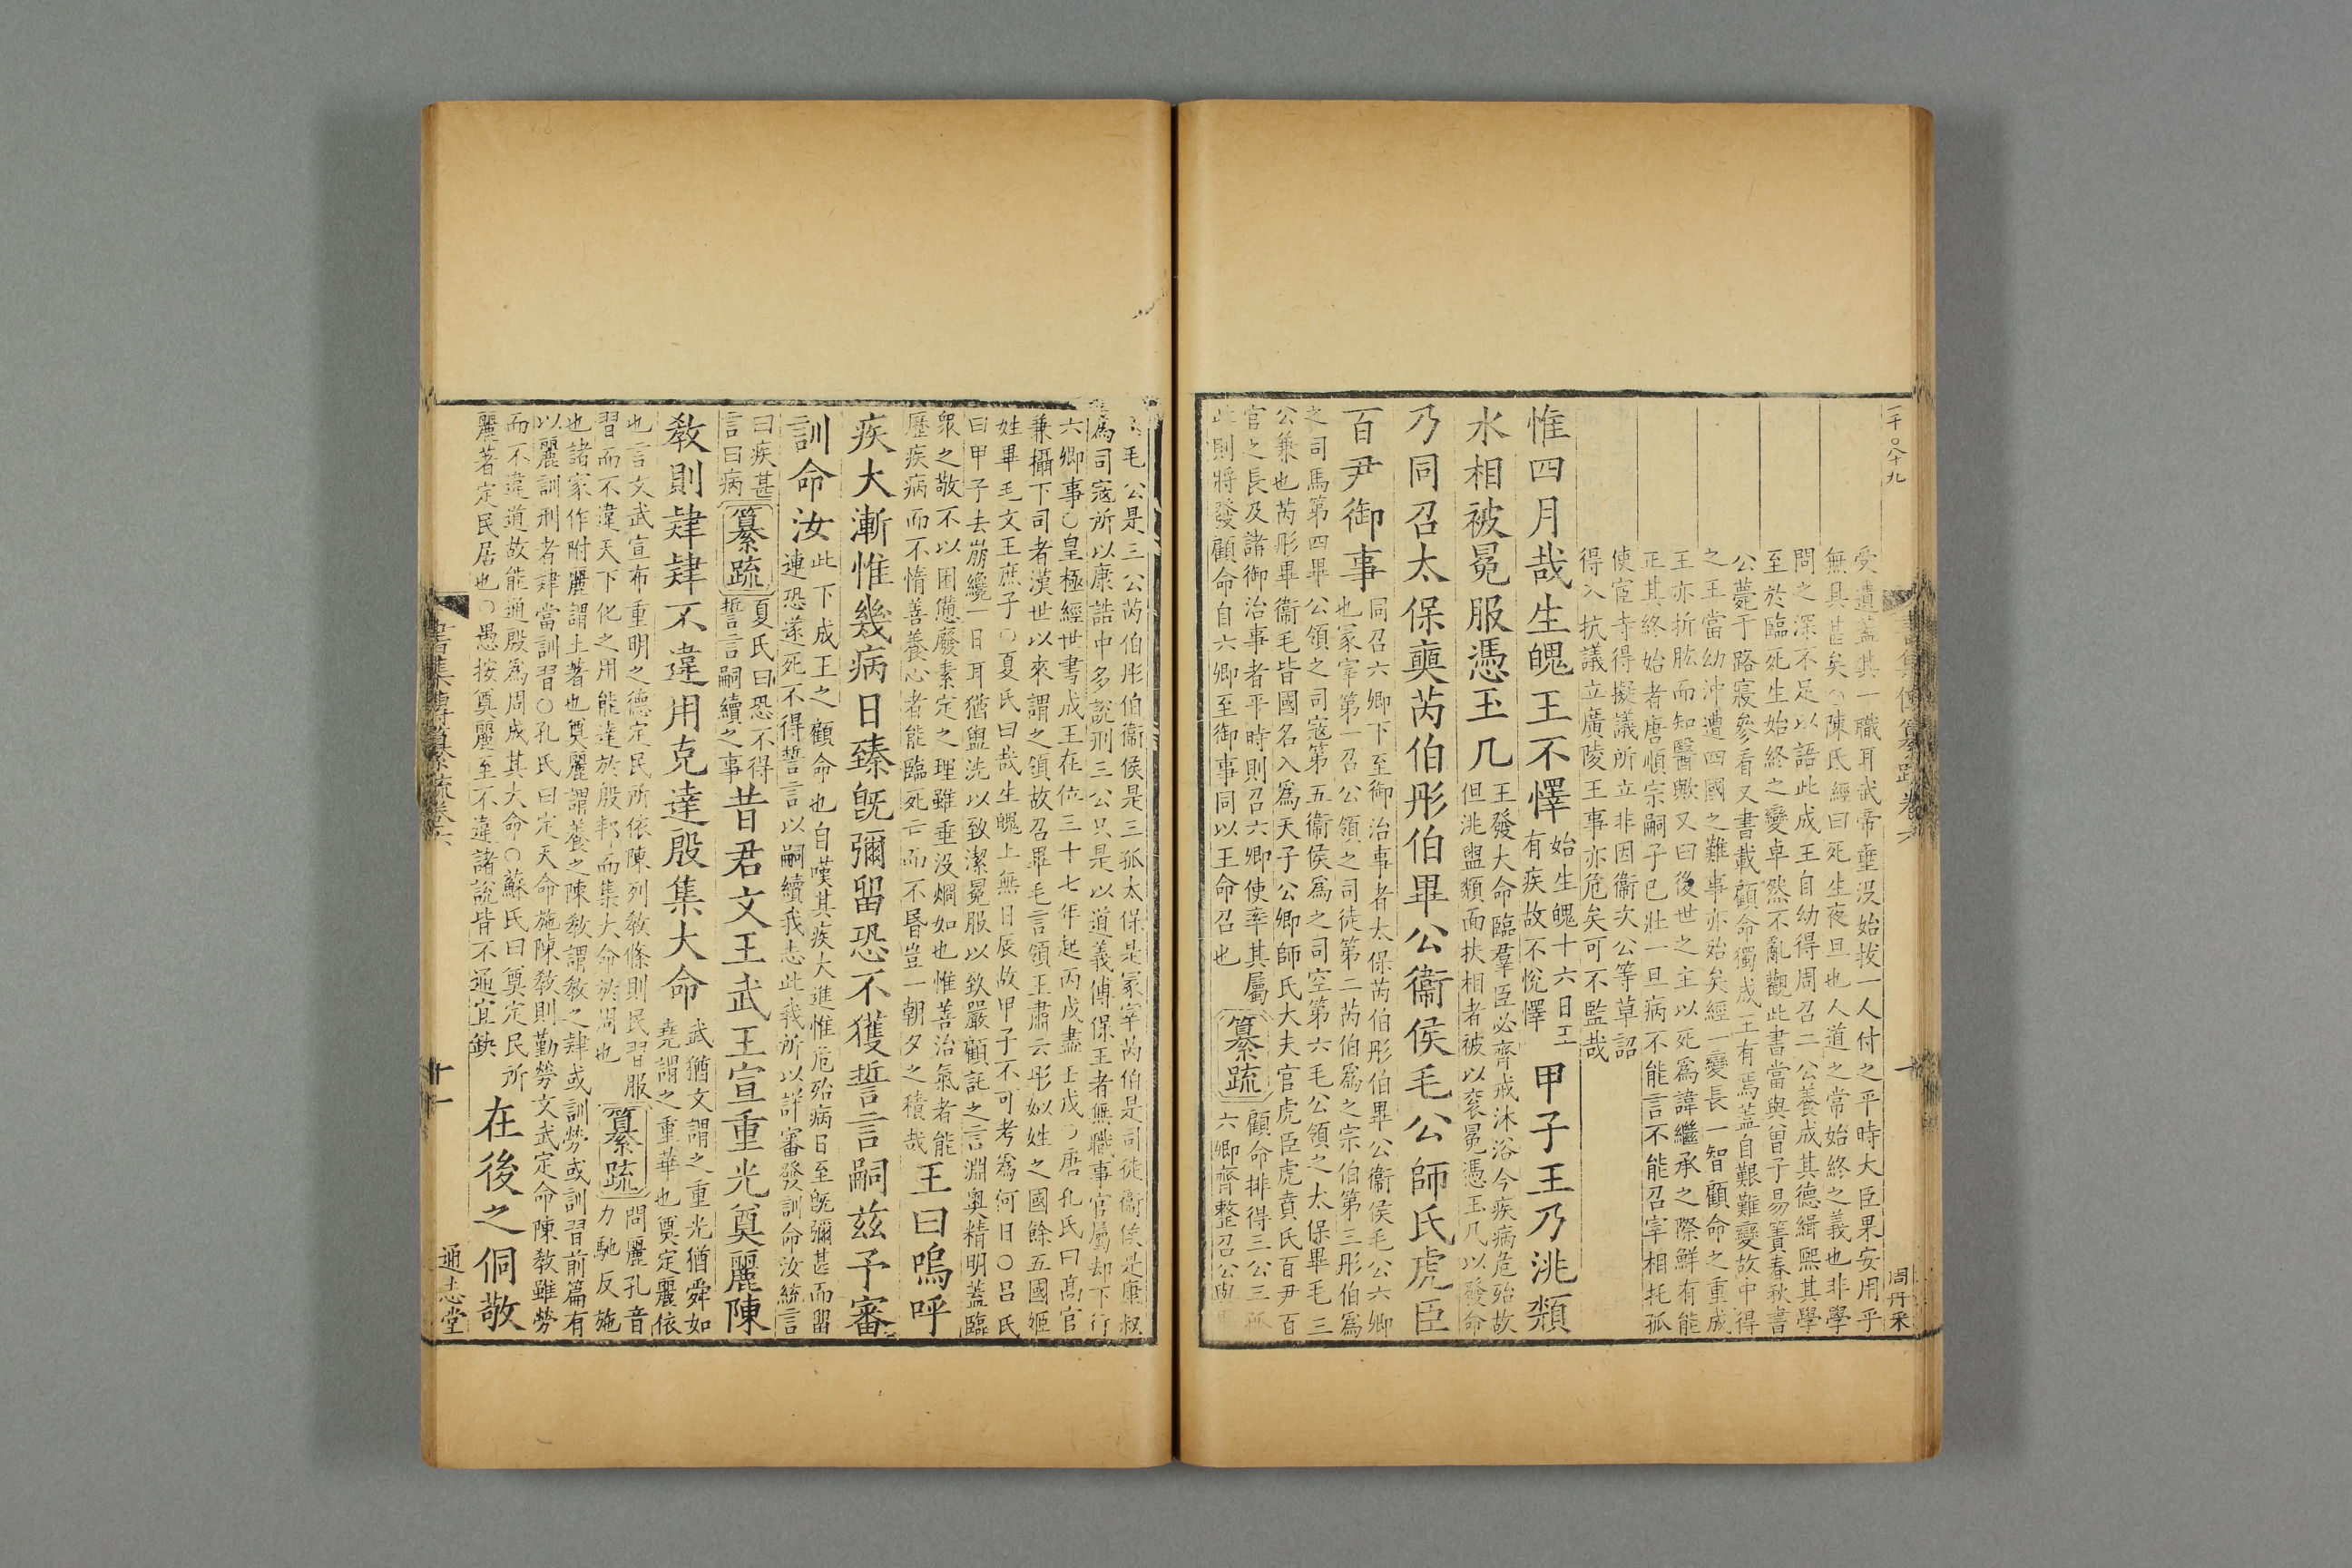 二千○八十九
周丹采
受遺蓋其一職耳武帝垂没始拔一人付之平時大臣果安用乎
無具甚矣○陳氏經曰死生夜旦也人道之常始終之義也非學
問之深不足以語此成王自幼得周召二公養成其德緝熙其學
至於臨死生始終之變卓然不亂觀此書當與曾子易簀春秋書
公薨于路寢參看又書載顧命獨成王有焉蓋自艱難變故中得
之王當幼沖遭四國之難事亦殆矣經一變長一智顧命之重成
王亦折肱而知醫歟又曰後世之主以死為諱繼承之際鮮有能
正其終始者唐順宗嗣子已壯一旦病不能言不能召宰相托孤
使宦寺得擬議所立非因衞次公等草詔
得入抗議立廣陵王事亦危矣可不監哉
惟四月哉生魄王不懌始生魄十六日王有疾故不悅懌甲子王乃洮頮
水相被冕服憑玉几王發大命臨羣臣必齊戒沐浴今疾病危殆故但洮盥頮面扶相者被以衮冕憑玉几以發命
乃同召太保奭芮伯彤伯畢公衞侯毛公師氏虎臣
百尹御事同召六卿下至御治事者太保芮伯彤伯畢公衞侯毛公六卿也冢宰第一召公領之司徒第二芮伯爲之宗伯第三彤伯爲
之司馬第四畢公領之司寇第五衞侯爲之司空第六毛公領之太保畢毛三
公兼也芮彤畢衞毛皆國名入爲天子公卿師氏大夫官虎臣虎賁氏百尹百
官之長及諸御治事者平時則召六卿使率其屬
此則將發顧命自六卿至御事同以王命召也
纂疏
顧命排得三公三孤
六卿齊整召公與
毛公是三公芮伯彤伯衞侯是三孤太保是冢宰芮伯是司徒衞侯是康叔
爲司寇所以康誥中多說刑三公只是以道義傅保王者無職事官屬却下行
六卿事○皇極經世書成王在位三十七年起丙戌盡壬戌○唐孔氏曰高官
兼攝下司者漢世以來謂之領故召畢毛言領王肅云彤姒姓之國餘五國姬
姓畢毛文王庶子○夏氏曰哉生魄上無日辰故甲子不可考爲何日○呂氏
曰甲子去崩纔一日耳猶盥洗以致潔冕服以致嚴顧託之言淵奧精明蓋臨
衆之敬不以困憊廢素定之理雖垂没烱如也惟善治氣者能
歷疾病而不惰善養心者能臨死亡而不昬豈一朝夕之積哉
王曰嗚呼
疾大漸惟幾病日臻旣彌留恐不獲誓言嗣茲予審
訓命汝此下成王之顧命也自嘆其疾大進惟危殆病日至旣彌甚而留連恐遂死不得誓言以嗣續我志此我所以詳審發訓命汝統言
曰疾甚言曰病纂疏夏氏曰恐不得誓言嗣續之事昔君文王武王宣重光奠麗陳
敎則肄肄不違用克達殷集大命武猶文謂之重光猶舜如堯謂之重華也奠定麗依
也言文武宣布重明之德定民所依陳列敎條則民習服
習而不違天下化之用能達於殷邦而集大命於周也
纂疏
問麗孔音
力馳反施
也諸家作附麗謂土著也奠麗謂養之陳敎謂敎之肄或訓勞或訓習前篇有
以麗訓刑者肄當訓習○孔氏曰定天命施陳敎則勤勞文武定命陳敎雖勞
而不違道故能通殷爲周成其大命○蘇氏曰奠定民所
麗著定民居也○愚按奠麗至不違諸說皆不通宜缺
在後之侗敬
書集傳纂疏卷六
十一
通志堂